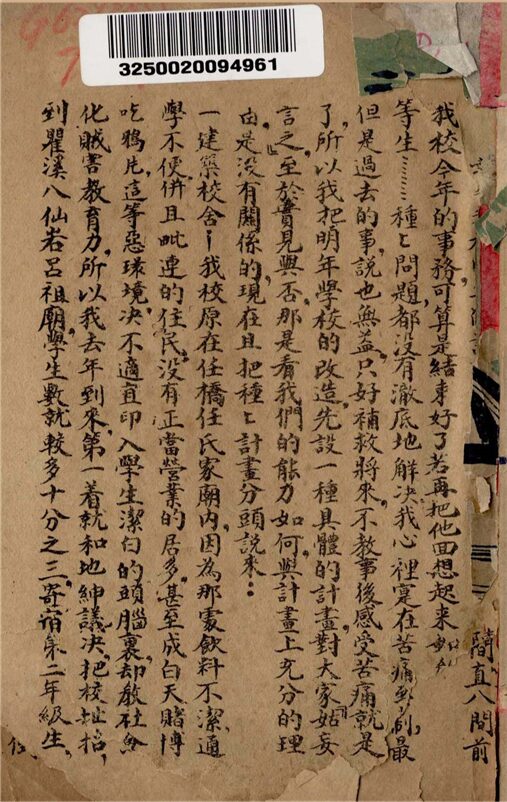 3250020094961
簡直八間前
我校今年的事務可算是結束好了若再把他回想起來
等生………種々問題,都沒有澈底地解決我心裡寔在苦痛 最
但是過去的事,說也無益,只好補救將來,不教事後感受苦痛就是
了,所以我把明年學校的改造,先設一種具體的計畫,對大家姑妄
言之,至於實見與否,那是看我們的能力如何,與計畫上充分的理
由,是沒有關係的,現在且把種々計畫分頭說來:
一建築校舍—我校原在任橋任氏家廟內,因為那處飲料不潔,通
學不便,併且毗連的住民,沒有正當營業的居多,甚至成白天賭博
吃鴉片,這等惡環境,決不適宜印入學生潔白的頭腦裏,却教社會
化賊害教育力,所以我去年到來,第一着就和地紳議决,把校址招,
到瞿溪八仙岩呂祖廟,學生數就較多十分之三,寄宿第二年級生,